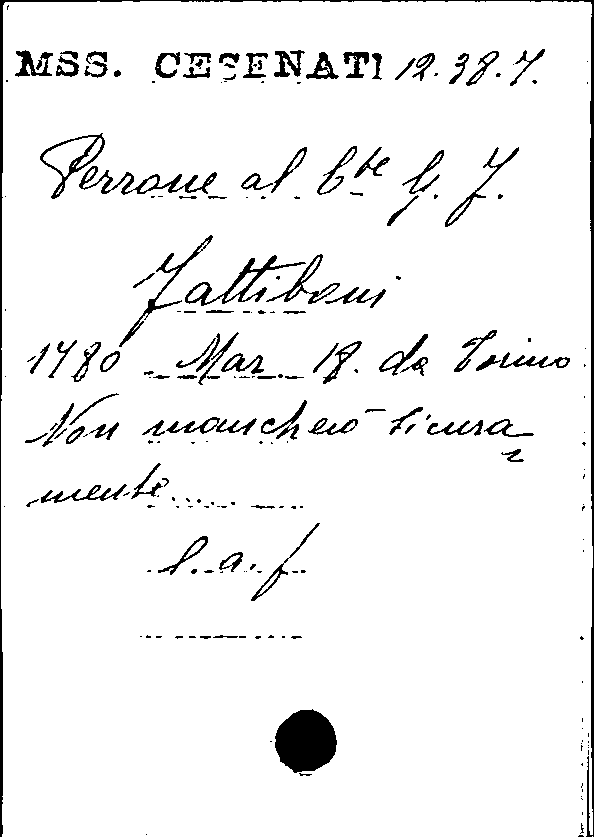 MSS. CESENATI 12.38.7.
Perrone al Cte G. F.
Fattiboni
1780 Mar 18. da Torino
Non mancherò sicura=
mente.....
l. a. f.